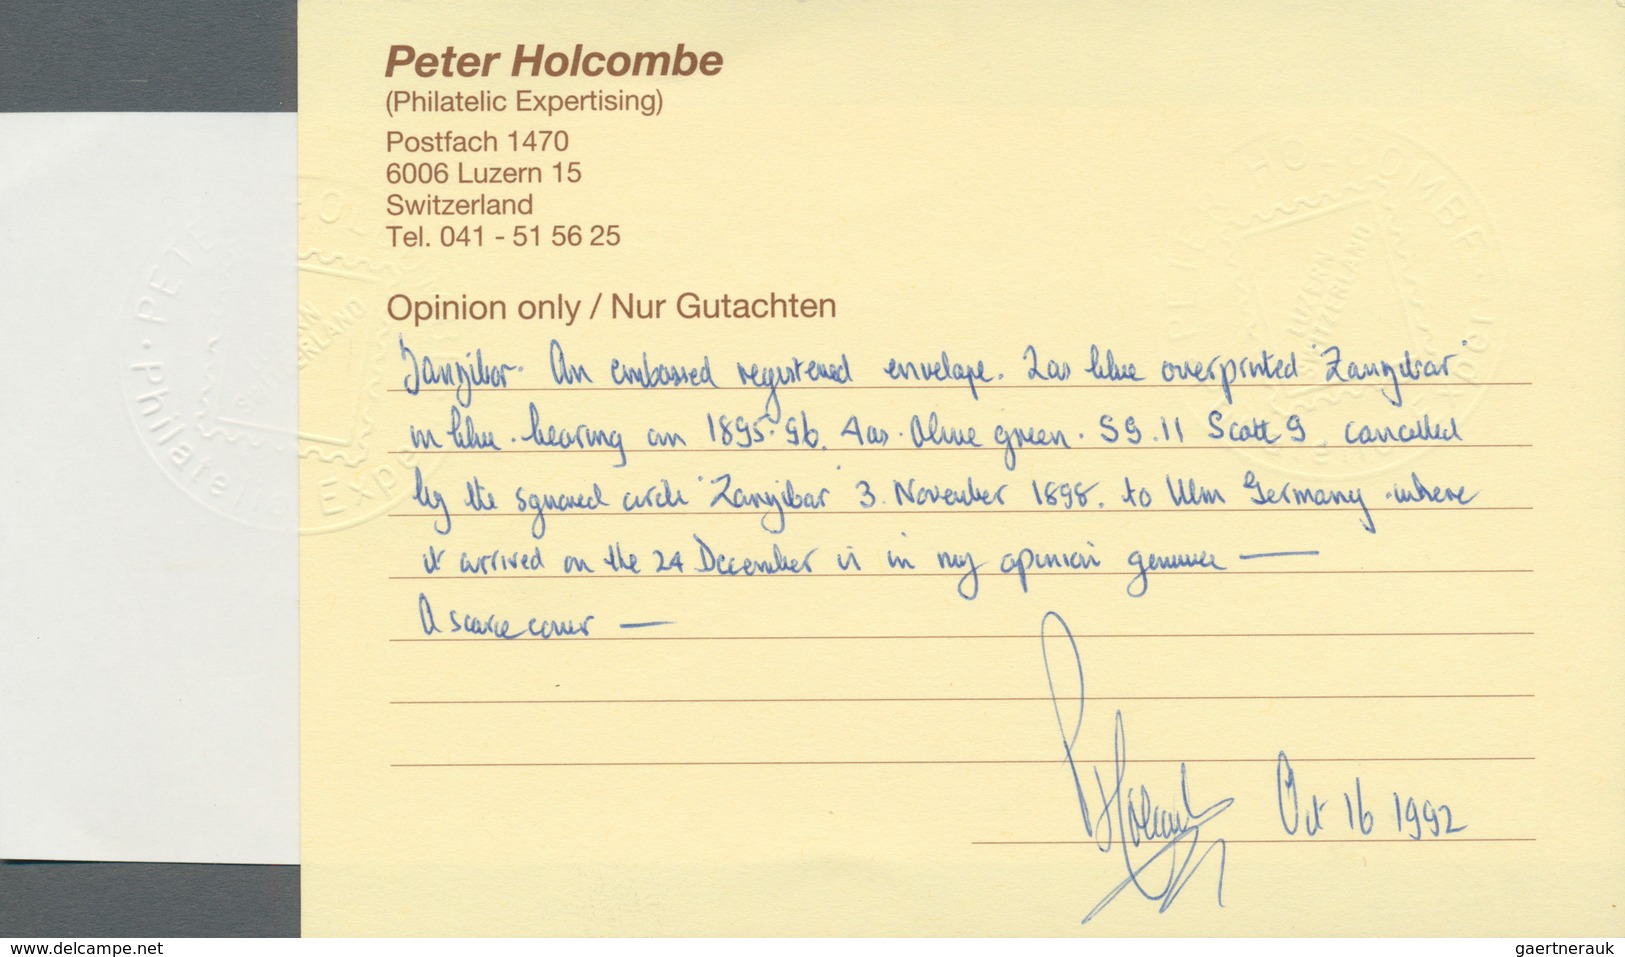 Peter Holcombe
(Philatelic Expertising)
Postfach 1470
6006 Luzern 15
Switzerland
Tel. 041 - 51 56 25
Opinion only / Nur Gutachten
Zanzibar. An embossed registered envelope. 2as blue overprinted 'Zanzibar'
in blue. bearing an 1895-96. 4as. Olive green. SG.11 Scott 9 cancelled
by the squared circle 'Zanzibar' 3. November 1898. to Ulm Germany - where
it arrived on the 24 December is in my opinion genuine —
A scarce cover —
P Holcombe Oct 16 1992
PETER HOLCOMBE
LUZERN
SWITZERLAND
www.delcampe.net
gaertnerauk